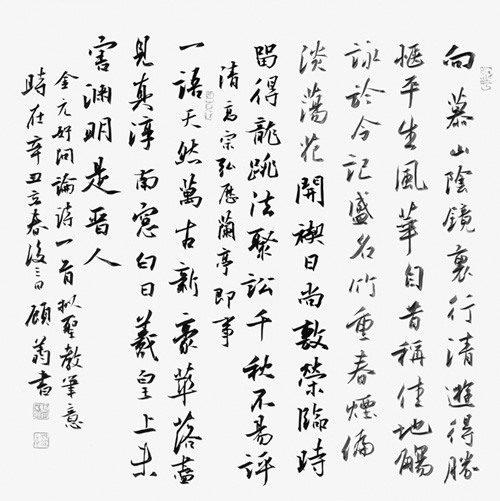 向慕山陰鏡裏行清遊得勝
愜平生風華自昔稱佳地觴
詠於今記盛名竹重春煙偏
淡蕩花開禊日尚敷榮臨時
留得龍跳法聚訟千秋不易評
清高宗弘曆蘭亭即事
一語天然萬古新豪華落盡
見真淳南窗白日羲皇上未
害淵明是晉人
金元好問論詩一首擬聖教筆意
時在辛丑立春後三日顧書